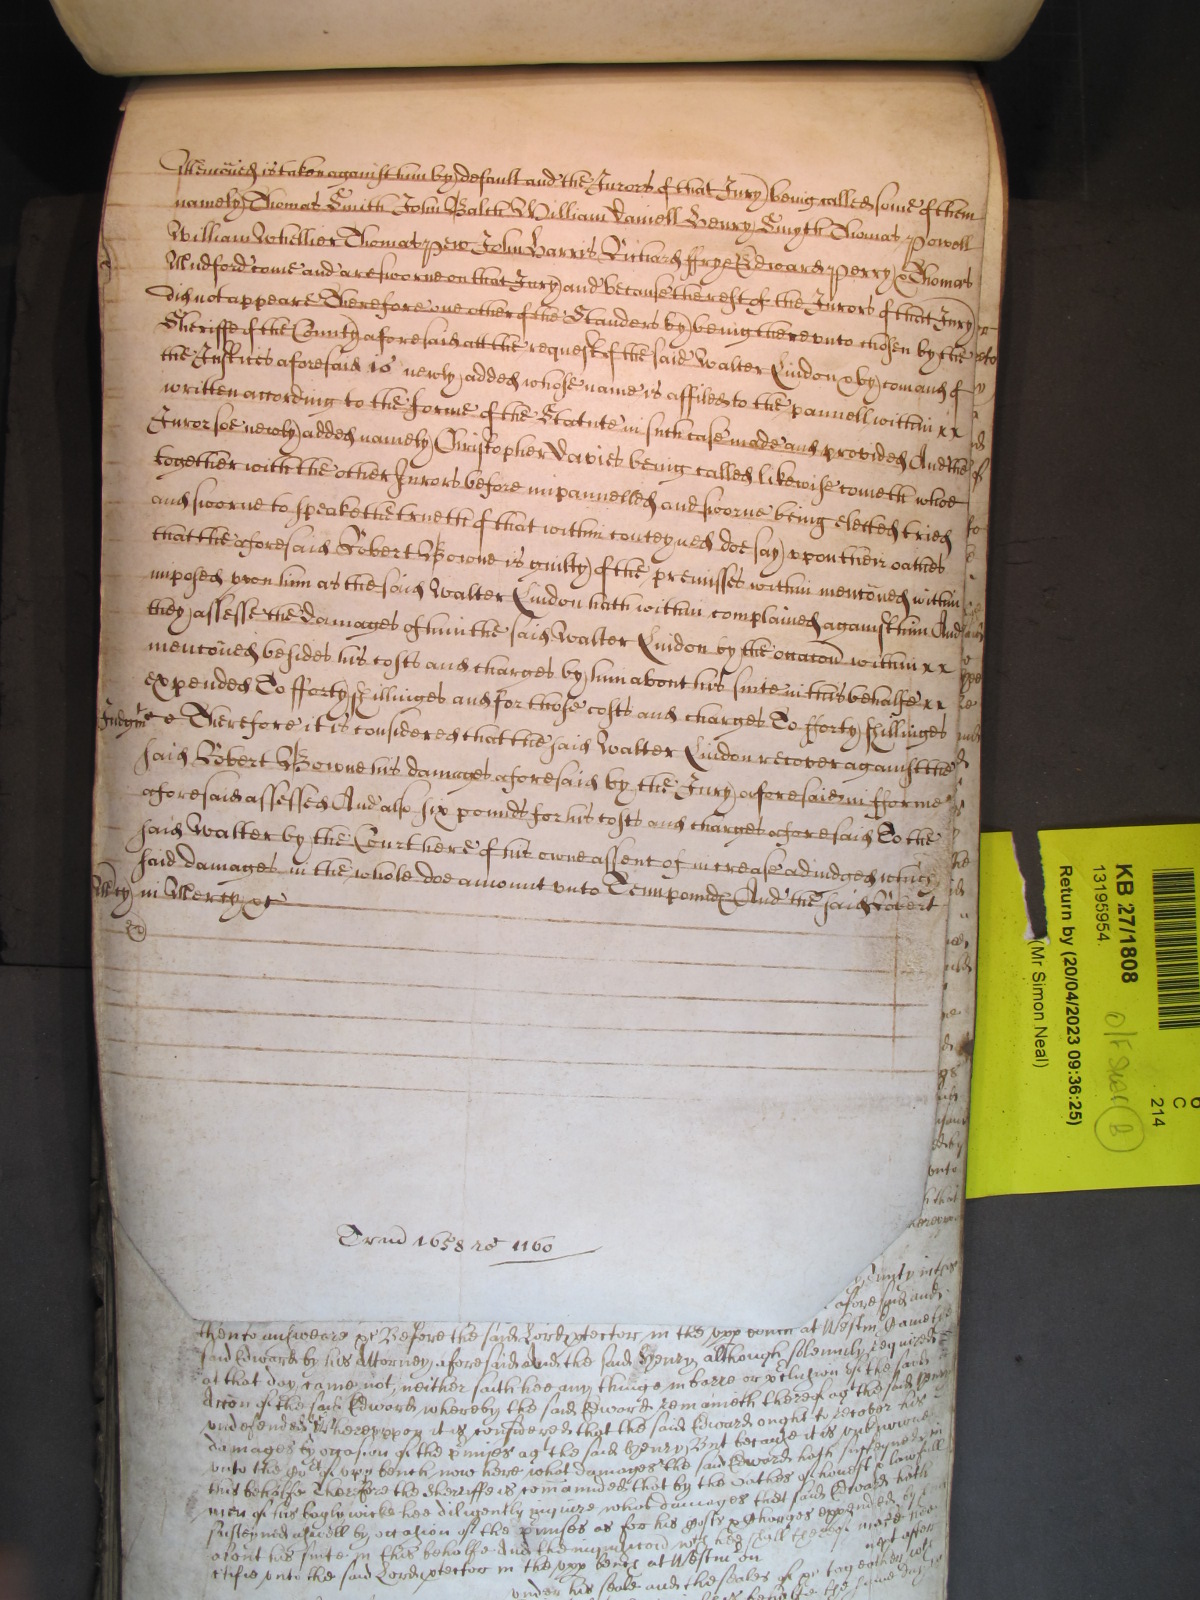 Menconed is taken against him by default and the Jurors of that Jury being called some of them
namely Thomas Smith John Balch William Daniell Henry Smyth Thomas Powell
William Whellier Thomas Pew John Harris Richard ffrye Edward Perry & Thomas
Mudford come and are sworne on that Jury and because the rest of the Jurors of that Jury
did not appeare Therefore one other of the Standers by being there unto chosen by the
Sheriffe of the County aforesaid att the request of the said Walter Lindon & by comand of
the Justices aforesaid is newly added whose name is affiled to the pannell within xx
written according to the forme of the Statute in such case made and provided And the
Juror soe newly added namely Christopher Davies being called likewise cometh whoe
together with the other Jurors before impannelled and sworne being elected tried
and sworne to speake the trueth of that within conteyned doe say upon their oathes
that the aforesaid Robert Bowne is guilty of the premisses within menconed within
imposed upon him as the said Walter Lindon hath within complained against him And
they assesse the damages of him the said Walter Lindon by the occacon within xx
menconed besides his costs and charges by him about his suite in this behalfe xx
expended To fforty shillinges and for those costs and charges To fforty shillinges
Judgmt Therefore it is considered that the said Walter Lindon recover against the
said Robert Bowne his damages aforesaid by the Jury aforesaid in fforme
aforesaid assessed And also six pounds for his costs and charges aforesaid To the
said Walter by the Court here of his owne assent of increase adiudged which
said damages in the whole doe amount unto Tenn pounds And the said Robert
Mcy in Mercy &c
Trin 1658 ro 1160
then to answeare &c Before the said Lord Protector in the upp bench at Westm came the
said Edward by his Attorney aforesaid And the said Henry although solemnly required
at that day came not neither saith hee any thinge in barre or preclusion of the said
Accon of the said Edward whereby the said Edward remaineth thereof agt the said Henry
undefended Whereupon it is considered that the said Edward ought to recover his
damages by occasion of the premises agt the said Henry But because it is unknowne
unto the Cort of upp bench now here what damages the said Edward hath susteyned in
this behalfe Therefore the Sherriffe is commanded that by the oathes of honest & lawfull
men of his baylywicke hee diligently inquire what damages the said Edward hath
susteyned aswell by occasion of the premises as for his costs & charges expended by him
about his suite in this behalfe And the inquisicion wch hee shall thereof
certifie unto the said Lord Protector in the upp bench at Westm on next after
under his seale and the seales of
KB 27/1808
13195954
Return by (20/04/2023 09:36:25)
(Mr Simon Neal)
C
214